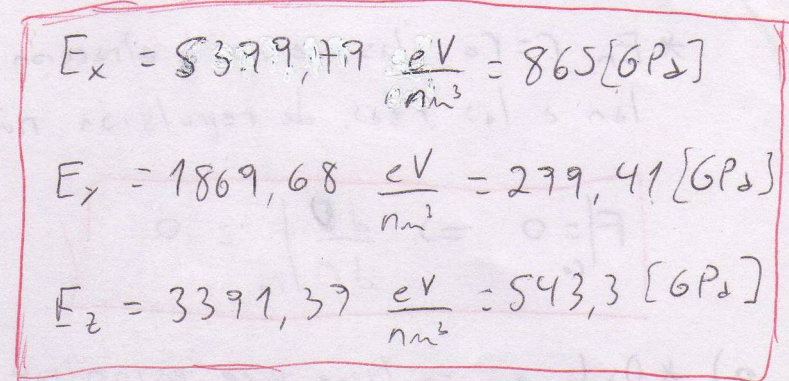 Ex = 5399,49 eV/nm³ = 865 [GPa]
Ey = 1869,68 eV/nm³ = 299,41 [GPa]
Ez = 3391,39 eV/nm³ = 543,3 [GPa]